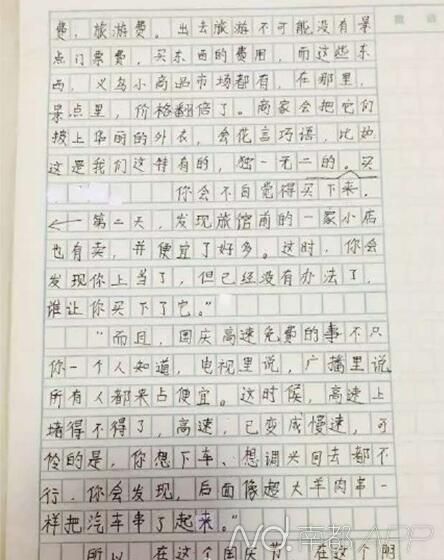 费，旅游费。出去旅游不可能没有景
点门票费，买东西的费用，而这些东
西，义乌小商品市场都有，在那里，
景点里，价格翻倍了。商家会把它们
披上华丽的外衣，会花言巧语，比如
这是我们这特有的，独一无二的。买
你会不自觉得买下来，
第二天，发现旅馆前的一家小店
也有卖，并便宜了好多。这时，你会
发现你上当了，但已经没有办法了，
谁让你买下了它。"
"而且，国庆高速免费的事不只
你一个人知道，电视里说，广播里说
所有人都来占便宜。这时候，高速上
堵得不得了，高速，已变成慢速，可
怜的是，你想下车、想调头回去都不
行，你会发现，后面像超大羊肉串一
样把汽车串了起来。"
所以，在这个国庆节，在这个阴
南都APP